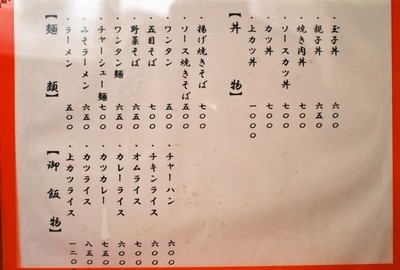 【麺類】
・ラーメン 五〇〇
・みそラーメン 六五〇
・チャーシュー麺 七〇〇
・ワンタン麺 六五〇
・野菜そば 六五〇
・五目そば 七〇〇
・ワンタン 五〇〇
・ソース焼きそば 五〇〇
・揚げ焼きそば 七〇〇
【丼物】
・上カツ丼 一〇〇〇
・カツ丼 七〇〇
・ソースカツ丼 七〇〇
・焼き肉丼 七〇〇
・親子丼 六五〇
・玉子丼 六〇〇
【御飯物】
・上カツライス 一二〇
・カツライス 八五〇
・カツカレー 七五〇
・カレーライス 六〇〇
・オムライス 六〇〇
・チキンライス 六〇〇
・チャーハン 六〇〇